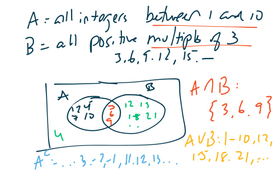 A = all integers between 1 and 10
B = all positive multiples of 3
3, 6, 9, 12, 15, ...
A
B
1 2 4
7 10
3
6
9
12 15
18 21
A ∩ B:
{3, 6, 9}
A ∪ B: 1-10, 12,
15, 18, 21, ...
-1, 11, 12, 13 ...